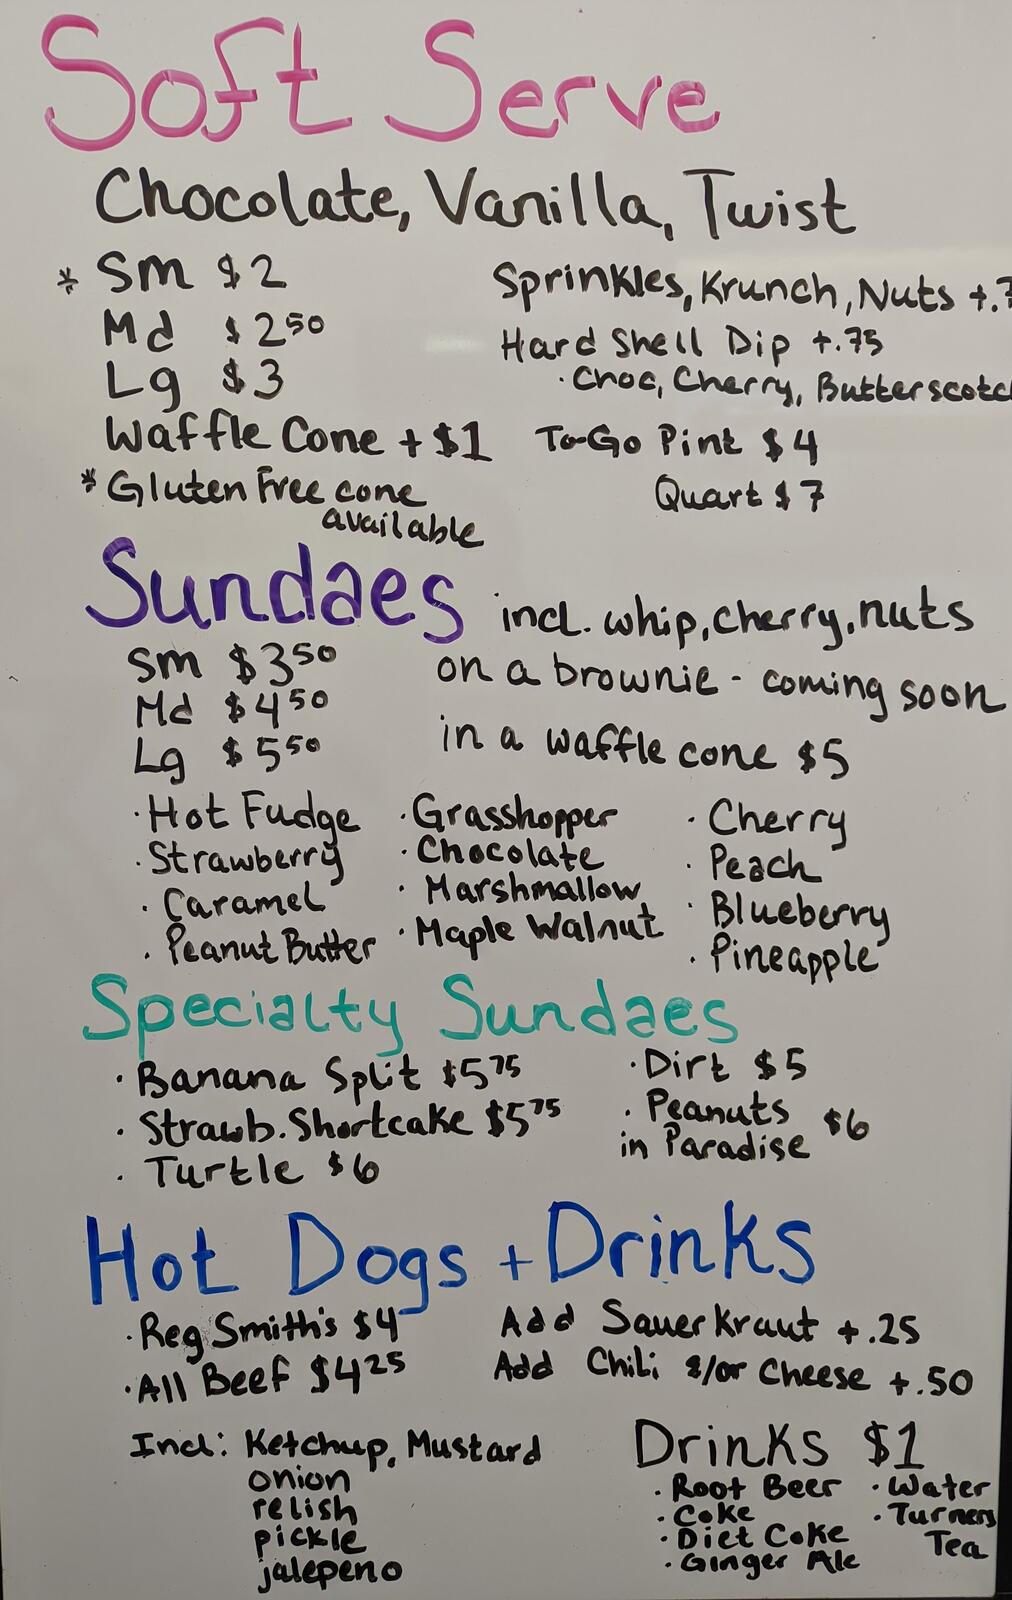 Soft Serve
Chocolate, Vanilla, Twist
* Sm $2
Md $2.50
Lg $3
Waffle Cone + $1
* Gluten Free cone
available
Sprinkles, Krunch, Nuts
Hard Shell Dip +.75
· Choc, Cherry, Butterscotc
To-Go Pint $4
Quart $7
Sundaes incl. whip, cherry, nuts
Sm $3.50
Md $4.50
Lg $5.50
on a brownie - coming soon
in a waffle cone $5
· Hot Fudge
· Strawberry
· Caramel
· Peanut Butter
· Grasshopper
· Chocolate
· Marshmallow
· Maple Walnut
· Cherry
· Peach
· Blueberry
· Pineapple
Specialty Sundaes
· Banana Split $5.75
· Strawb. Shortcake $5.75
· Turtle $6
· Dirt $5
· Peanuts
in Paradise $6
Hot Dogs + Drinks
· Reg Smith's $4
· All Beef $4.25
Add Sauerkraut +.25
Add Chili &/or Cheese +.50
Incl: Ketchup, Mustard
onion
relish
pickle
jalepeno
Drinks $1
· Root Beer
· Coke
· Diet Coke
· Ginger Ale
· Water
· Turners
Tea